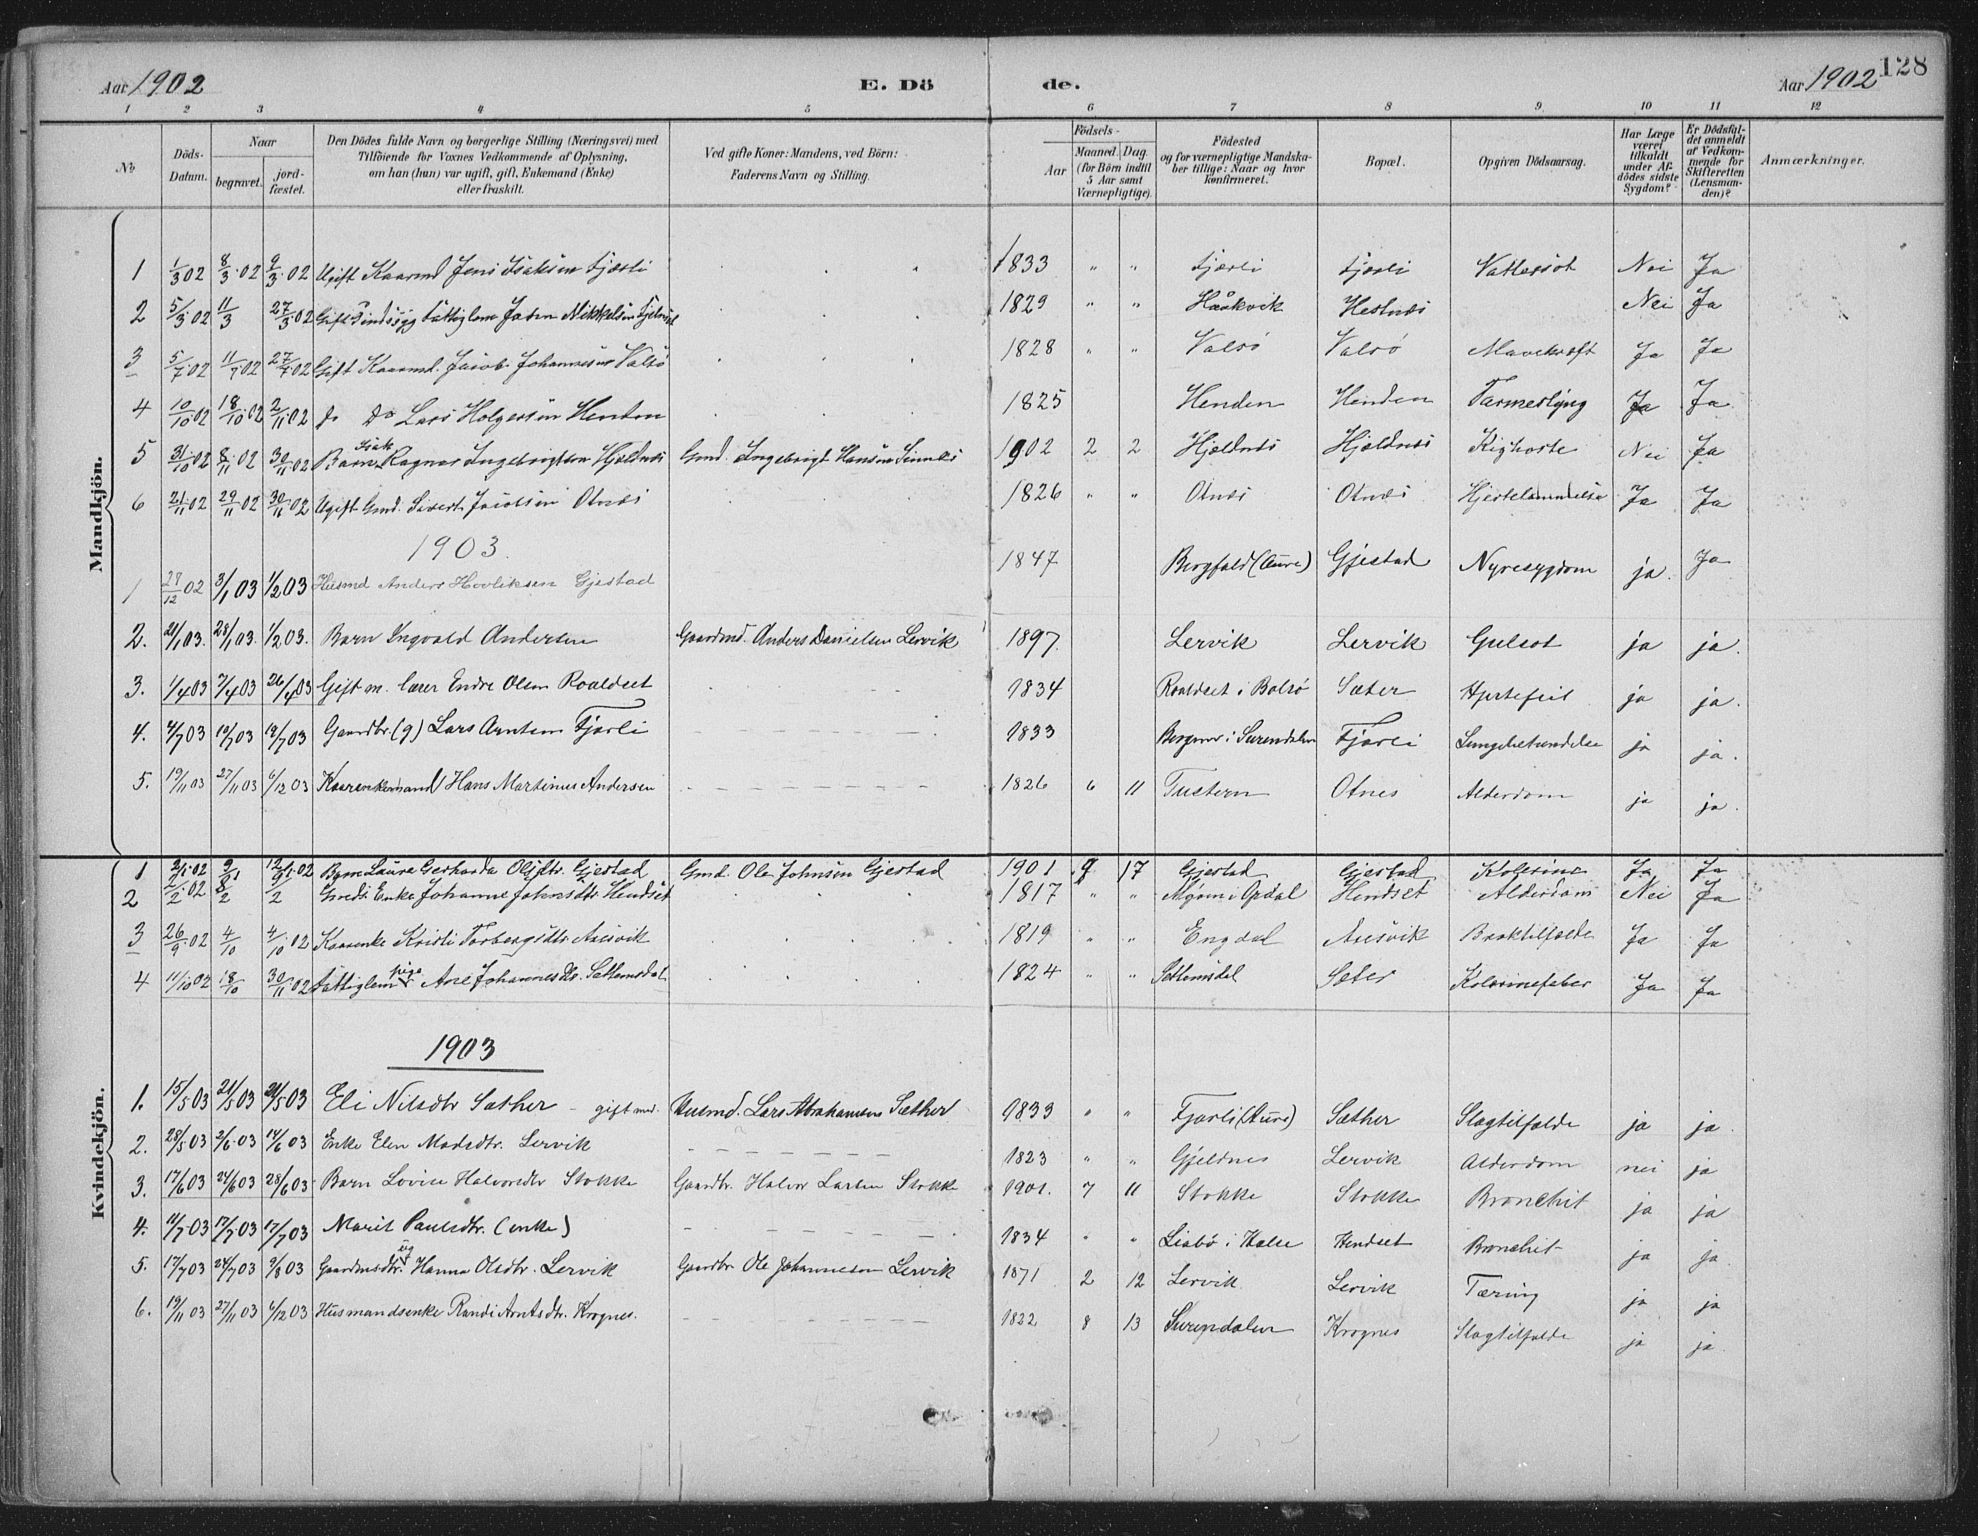 Aar 1902 E. Dö de. Aar 1902 128
1 2 3 4 5 6 7 8 9 10 11 12
No
Döds-Datum.
Naar begravet. jordfæstet.
Den Dödes fulde Navn og borgerlige Stilling (Næringsvei) med
Tilföiende for Voxnes Vedkommende af Oplysning,
om han (hun) var ugift, gift, Enkemand (Enke)
eller fraskilt.
Ved gifte Koner: Mandens, ved Börn:
Faderens Navn og Stilling.
Födsels-
Aar Maaned. Dag.
(for Börn indtil
5 Aar samt
Værnepligtige).
Födested
og for værnepligtige Mandska-
ber tillige: Naar og hvor
konfirmeret.
Bopæl.
Opgiven Dödsaarsag.
Har Læge
været
tilkaldt
under Af-
dödes sidste
Sygdom?
Er Dödsfal-
det anmeldt
af Vedkom-
mende for
Skifteretten
(Lensman-
den)?
Anmærkninger.
Mandkjön.
1 1/3 02 8/3 02 9/3 02 Ugift Kaarmd Jens Isaksen Fjærli 1833 " " Fjærli Fjærli Vattersot Nei Ja
2 5/3 02 11/3 27/3 02 Gift Mikkelsen 1829 " " Håkvik Hestnæs Nei Ja
3 5/7 02 11/7 02 27/7 02 Gift Kaarmd. Jacob Johannesen Valsö 1828 " " Valsö Valsö Mavekræft Ja Ja
4 10/10 02 18/10 02 2/11 02 do Do Lars Holgersen Henden 1825 Henden Henden Tarmeslyng Ja Ja
5 31/10 02 8/11 02 30/11 02 Barn Isak Ragnar Ingebrigtsen Hjeldnæs Gmd. Ingebrigt Hansen 1902 2 2 Hjeldnæs Hjeldnæs Kighoste Nei Ja
6 21/11 02 29/11 02 30/11 02 Ugift Gmd. Sivert Jacobsen Otnæs 1826 " " Otnæs Otnæs Hjertelammelse Ja Ja
1903
1 28/12 02 3/1 03 1/2 03 Husmd Anders Gjestad 1847 Bergfald (Aure) Gjestad Nyresygdom ja. Ja
2. 21/1 03. 28/1 03. 1/2 03. Barn Ingvald Andersen Gaardmd. Anders Danielsen Lervik 1897. Lervik Lervik Gulsot ja ja.
3. 1/4 03 7/4 03 26/4 03 Gift m. lærer Endre Olsen Roaldset 1834 Roaldset i Bolsö Sæter Hjertefeil ja ja.
4. 4/7 03 10/7 03 19/7 03 Gaardbr. (g) Lars Arntsen Fjærli 1833 i Surendalen Fjærli Lungebetændelse ja ja.
5. 19/11 03 27/11 03 6/12 03 Kaarenkemand Hans Martinus Andersen 1826 6 11 Tustern Otnes Alderdom ja ja.
Kvindekjön.
1 2/1 02 9/1 12/1 02 Barn Laura Gerharda Olsdtr. Gjestad Gmd. Ole Johnsen Gjestad 1901 9 17 Gjestad Gjestad Kolerine Ja Ja
2 2/2 02 8/2 9/2 Gmds. Enke Johanne Johnsdtr Hendset 1817 " " i Opdal Hendset Alderdom Nei Ja
3 26/9 02 4/10 4/10 02 Kaarenke Kristi Torbergsdtr Aresvik 1819 " " Engdal Aresvik Broktilfælde Ja Ja
4 11/10 02 18/10 30/11 02 Fattiglem pige Ane Johannesdtr. Settemsdal 1824 " " Settemsdal Sæter Kolerinefeber Ja Ja
1903
1. 15/5 03 21/5 03 24/5 03 Eli Nilsdtr Sæther - gift med. Husmd. Lars Abrahamsen Sæther 1833 " " Fjærli (Aure) Sæther Slagtilfælde ja ja.
2. 28/5 03 2/6 03 14/6 03 Enke Elen Madsdtr. Lervik 1823 " " Gjeldnes Lervik Alderdom nei ja
3. 17/6 03 24/6 03 28/6 03 Barn Lovise Halvorsdtr Stokke Gaardbr. Halvor Larsen Stokke 1901. 7 11 Stokke Stokke Bronchit ja ja
4. 11/7 03 17/7 03 17/7 03 Marit Paulsdtr. (enke) 1834 " " Liabö i Halse Hendset Bronchit ja ja.
5. 17/7 03 24/7 03 9/8 03 Gaardmsdtr. ug Hanna Olsdtr. Lervik Gaardbr Ole Johannesen Lervik 1871 2 12 Lervik Lervik Tæring ja ja
6. 19/11 03 27/11 03 6/12 03 Husmandsenke Randi Arntsdtr. Krognes. 1822 8 13 Surendalen Krognes Slagtilfælde ja ja.